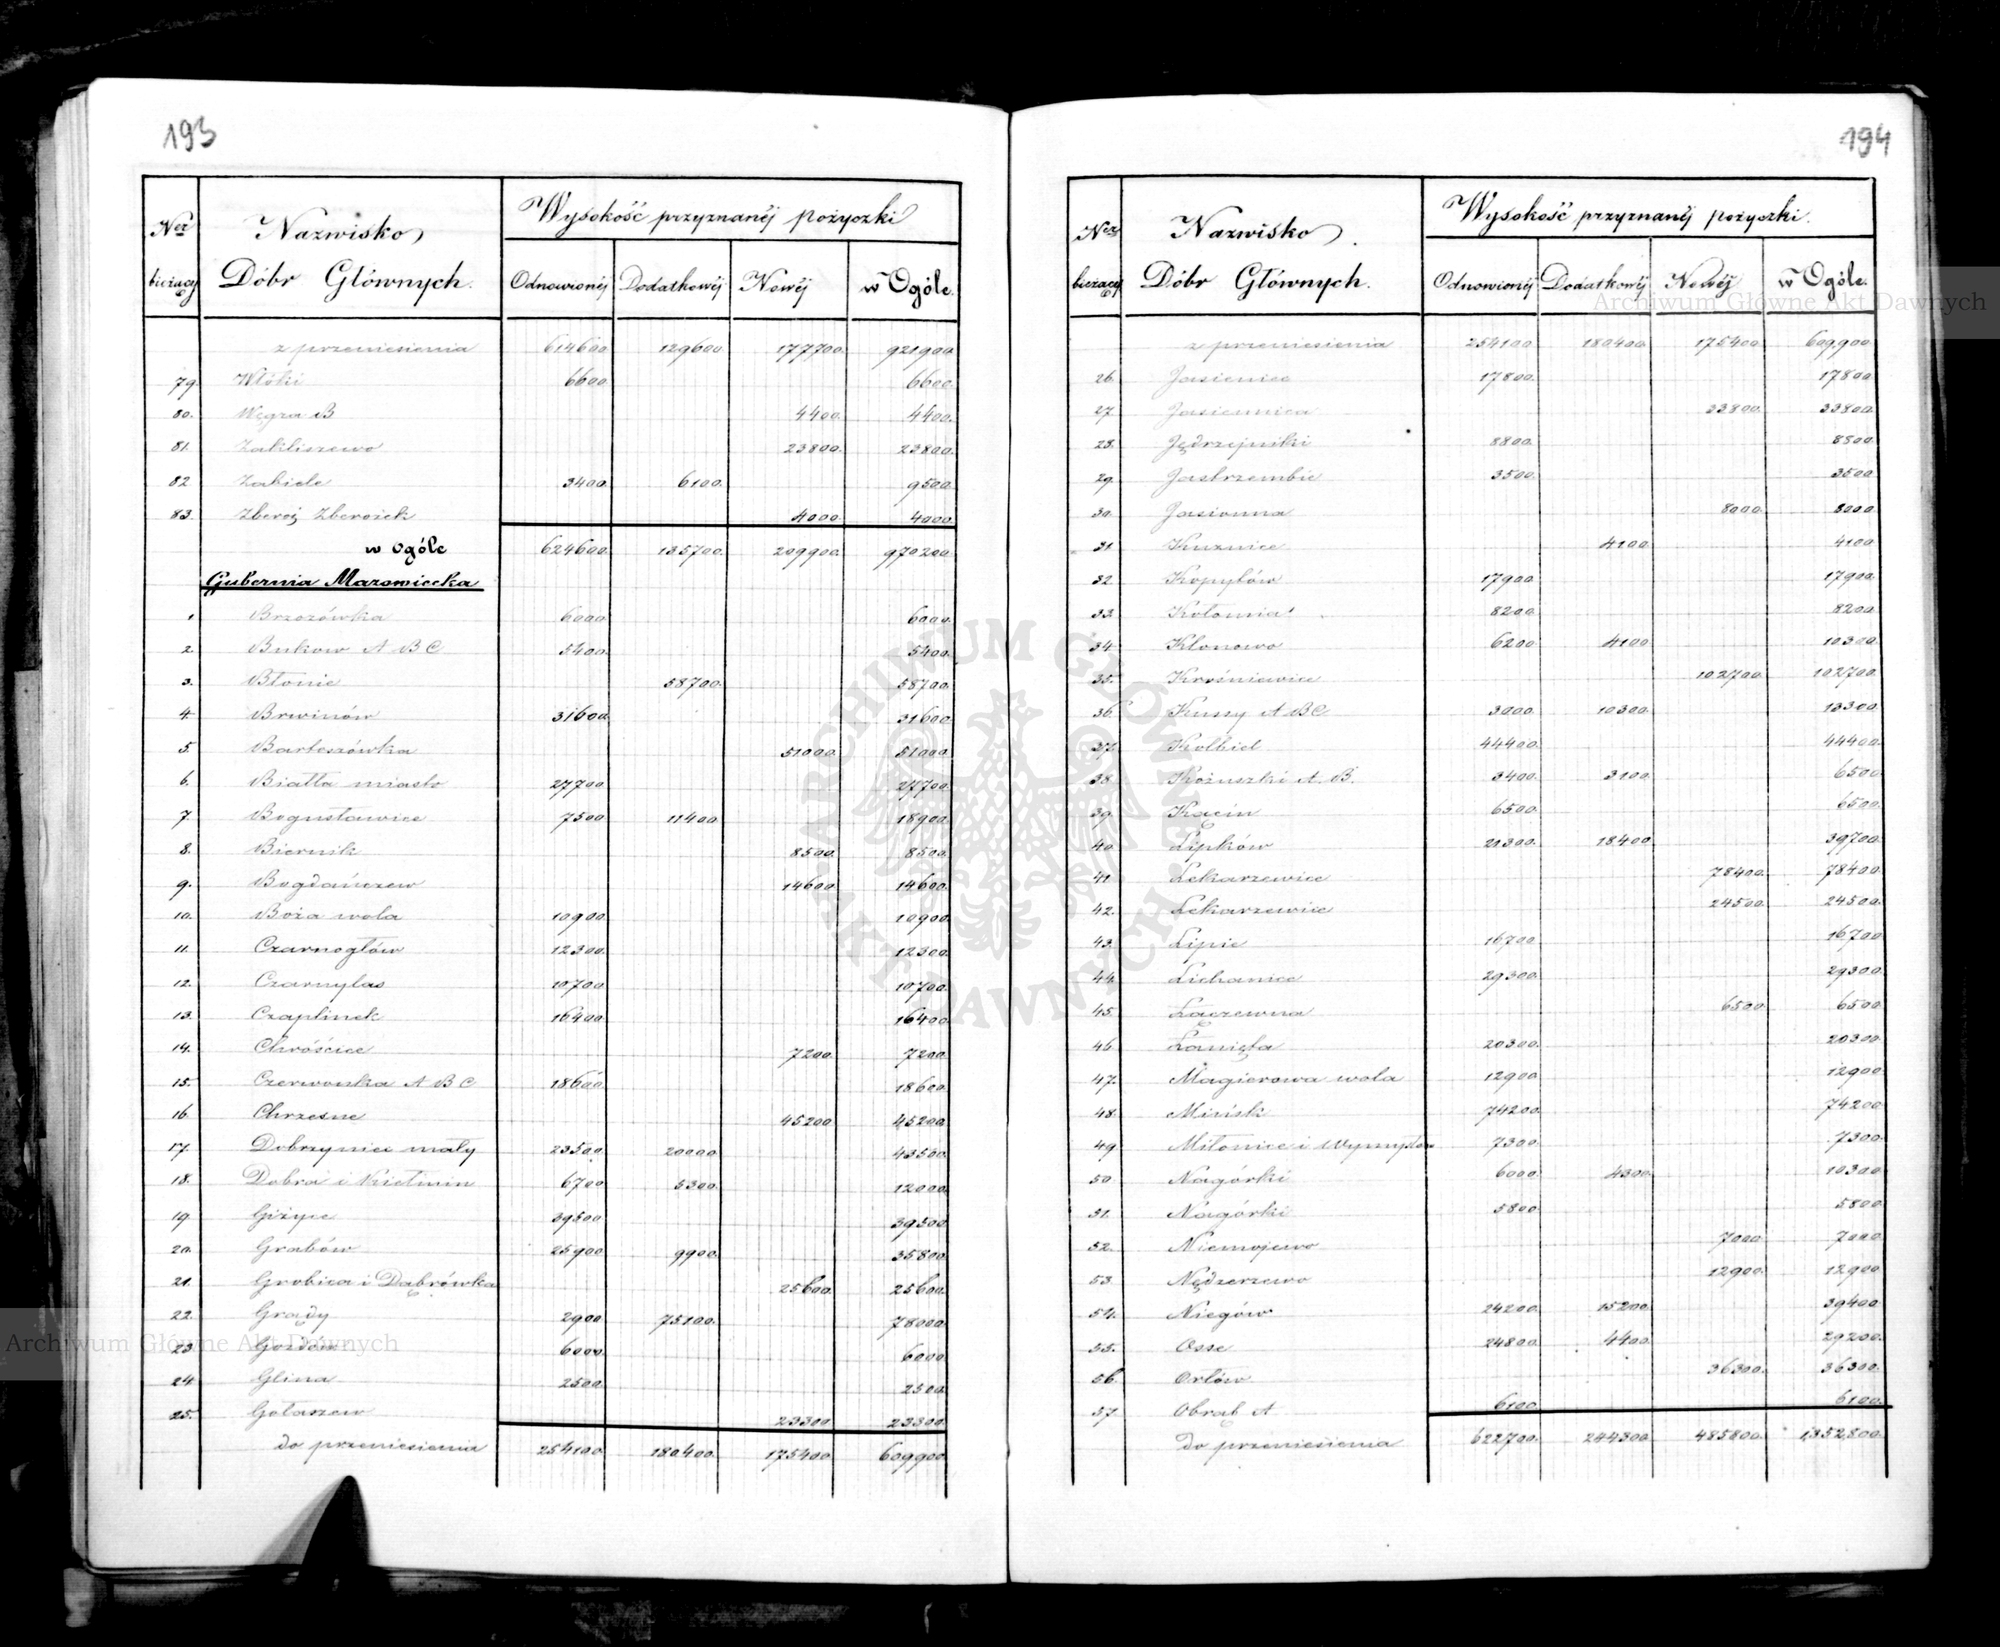 193
Ner bieżący
Nazwisko Dóbr Głównych.
Wysokość przyznanéj pożyczki
Odnowionéj Dodatkowéj Nowéj w Ogóle.
z przeniesienia 614600. 129600. 177700. 921900.
79. Włóki 6600 6600.
80. Węgra B 4400. 4400.
81. Zakliszewo 23800. 23800.
82 Zabiele 3400. 6100. 9500.
83. Zberoż Zberożek 4000. 4000.
w ogóle 624600. 135700. 209900. 970200.
Gubernia Mazowiecka
1. Brzozówka 6000. 6000.
2. Bukow A B C 5400. 5400.
3. Błonie 58700. 58700.
4. Brwinów 31600. 31600.
5. Bartoszówka 51000. 51000.
6. Biatta miasto 27700. 27700.
7. Bogusławice 7500 11400. 18900.
8. Biernik 8500. 8500.
9. Bogdańczew 14600. 14600.
10. Boża wola 10900. 10900.
11. Czarnogłów 12300. 12300.
12. Czarnylas 10700. 10700.
13. Czaplinek 16400. 16400.
14. Chróścice 7200. 7200.
15. Czerwonka A B C 18600. 18600.
16. Chrzesne 45200. 45200.
17. Dobrzyniec mały 23500. 20000. 43500.
18. Dobra i Kiełmin 6700 5300. 12000.
19. Giżyce 39500 39500
20. Grabów 25900 9900. 35800.
21. Grobica i Dąbrówka 25600. 25600.
22. Grądy 2900 75100. 78000.
23. Gozdów 6000. 6000
24. Glina 2500. 2500.
25. Gołaszew 23300 23300.
do przeniesienia 254100. 180400. 175400. 609900.
194
Ner bieżący
Nazwisko Dóbr Głównych.
Wysokość przyznanéj pożyczki.
Odnowionéj Dodatkowéj Nowéj w Ogóle.
z przeniesienia 254100 180400. 175400. 609900.
26. Jasieniec 17800. 17800
27. Jasiennica 33800. 33800.
28. Jędrzejniki 8800. 8800.
29. Jastrzembie 3500. 3500.
30. Jasionna 8000. 8000
31. Kuznice 4100. 4100
32. Kopyłów 17900. 17900.
33. Kołomia 8200. 8200
34. Klonowo 6200 4100. 10300.
35. Krośniewice 102700. 102700.
36. Kussy A B C. 3000. 10300. 13300.
37. Kolbiel 44400. 44400.
38. Kożuszki A. B. 3400. 3100. 6500.
39. Kącin 6500. 6500.
40. Lipków 21300. 18400 39700.
41. Lekarzewice 78400. 78400.
42. Lekarzewice 24500. 24500.
43. Lipie 16700. 16700
44. Lichanice 29300. 29300.
45. Łączewna 6500. 6500
46. Łanięta 20300. 20300.
47. Magierowa wola 12900 12900
48. Mińsk 74200. 74200
49. Miłonice i Wymysłow 7300. 7300.
50 Nagórki 6000. 4300. 10300
51. Nagórki 5800. 5800.
52. Niemojewo 7000. 7000
53. Nędzerzewo 12900. 12900
54. Niegów 24200. 15200. 39400
55. Osse 24800. 4400. 29200.
56. Orłów 36300. 36300.
57. Obrąb A 6100. 6100.
do przeniesienia 622700. 244300. 485800. 1,352,800.
ARCHIWUM GŁÓWNE AKT DAWNYCH
Archiwum Główne Akt Dawnych
Archiwum Główne Akt Dawnych